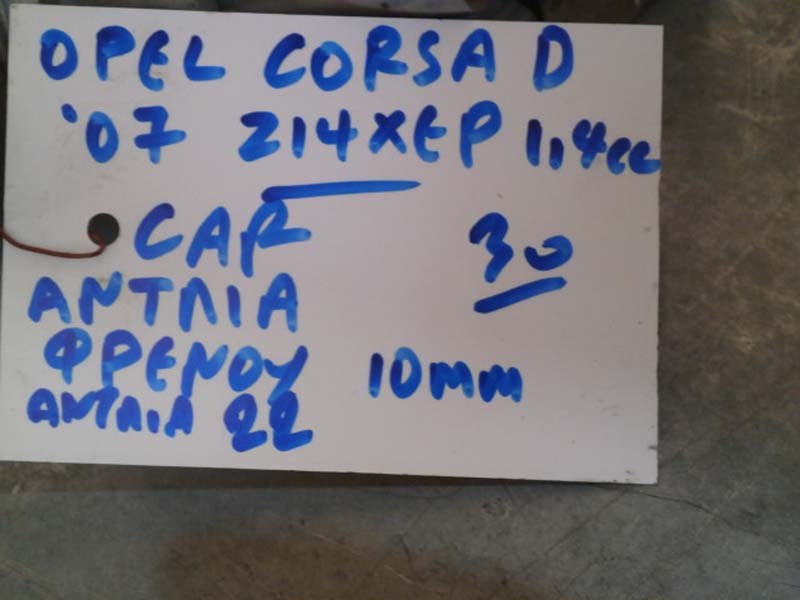 OPEL CORSA D
'07 Z14XEP 1,4cc
CAR
30
ΑΝΤΛΙΑ
ΦΡΕΝΟΥ 10mm
ΑΝΤΛΙΑ 22